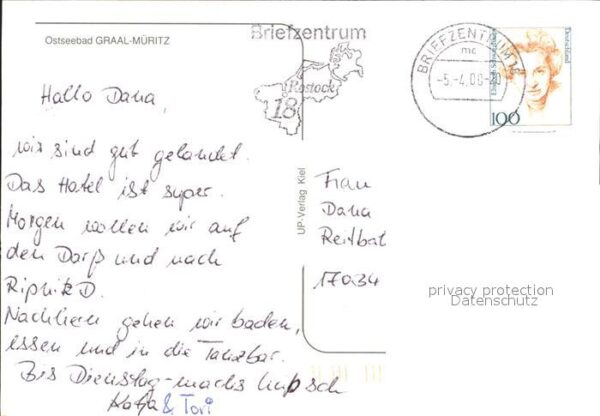 Ostseebad GRAAL-MÜRITZ
Briefzentrum
Rostock
18
BRIEFZENTRUM 18
mc
-5.-4.00-20
Deutschland
100
Hallo Dana,
wir sind gut gelandet.
Das Hotel ist super.
Morgen wollen wir auf
den Darß und nach
Ribnitz D.
Nachher gehen wir baden,
essen und in die Tanzbar.
Bis Dienstag machs hübsch
Katja & Tori
UP-Verlag Kiel
Frau
Dana
17034
privacy protection
Datenschutz